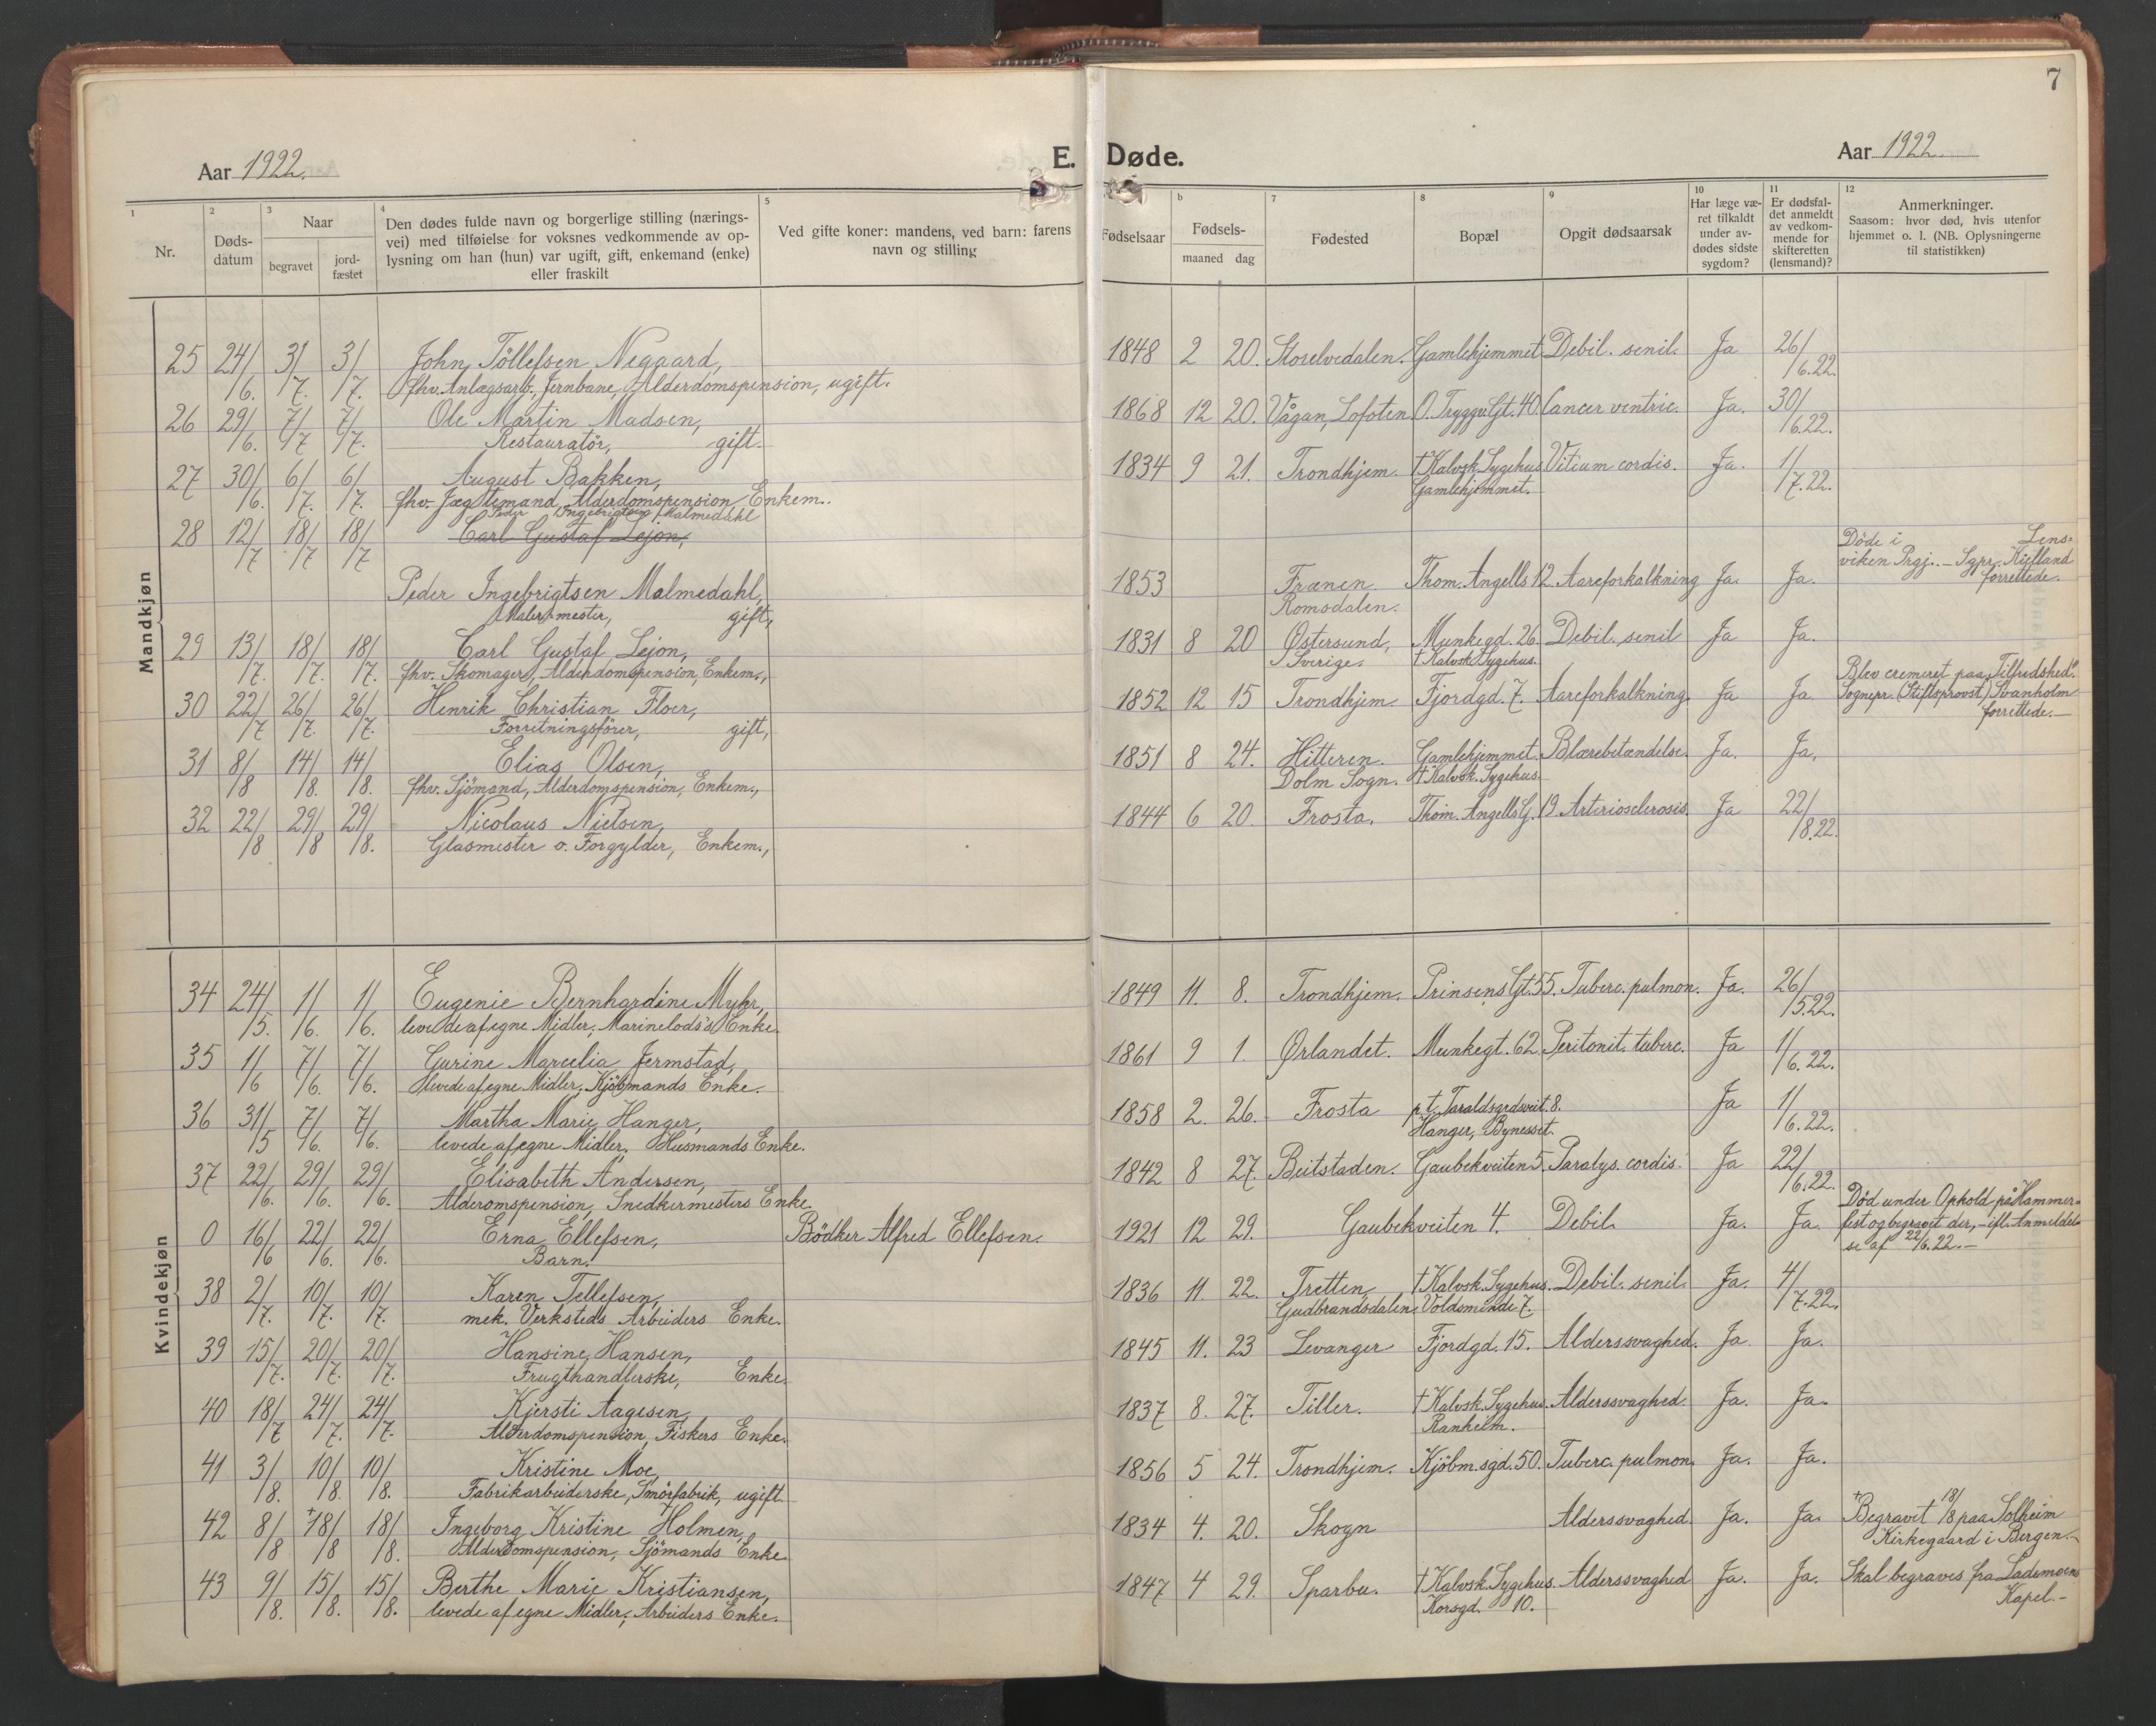 7
Aar 1922.
E. Døde.
Aar 1922.
1 2 3 4 5 b 7 8 9 10 11 12
Nr.
Døds-
datum
Naar
begravet
jord-
fæstet
Den dødes fulde navn og borgerlige stilling (nærings-
vei) med tilføielse for voksnes vedkommende av op-
lysning om han (hun) var ugift, gift, enkemand (enke)
eller fraskilt
Ved gifte koner: mandens, ved barn: farens
navn og stilling
Fødselsaar
Fødsels-
maaned dag
Fødested
Bopæl
Opgit dødsaarsak
Har læge væ-
ret tilkaldt
under av-
dødes sidste
sygdom?
Er dødsfal-
det anmeldt
av vedkom-
mende for
skifteretten
(lensmand)?
Anmerkninger.
Saasom: hvor død, hvis utenfor
hjemmet o. l. (NB. Oplysningerne
til statistikken)
Mandkjøn
25 24/6. 3/7. 3/7. John Töllefsen Neggaard, 1848 2 20. Storelvedalen. Gamlehjemmet Debil. senil. Ja 26/6.22.
fhv. Anlægsarb., Jernbane, Alderdomspension, ugift.
26 29/6. 7/7 7/7. Ole Martin Madsen, 1868 12 20. Vågan, Lofoten. O. Tryggv.Gt. 40. Cancer ventric. Ja. 30/6.22.
Restauratör, gift.
27 30/6. 6/7. 6/7. August Bakken, 1834 9 21. Trondhjem. † Kalvsk. Sygehus Vitium cordis. Ja. 1/7.22.
fhv. Jægtemand, Alderdomspension Enkem.. Gamlehjemmet.
Peder Ingebrigtsen Malmedahl
28 12/7 18/7 18/7 Carl Gustaf Lejon,
Døde i Lens-
viken Prgj. - Sgpr. Kielland
forrettede.
Peder Ingebrigtsen Malmedahl, 1853 Frænen Thom. Angells 12 Aareforkalkning Ja. Ja.
Malermester, gift, Romsdalen.
29 13/7. 18/7. 18/7. Carl Gustaf Lejon, 1831 8 20 Østersund, Munkegd. 26. Debil. senil Ja Ja.
fhv. Skomager, Alderdomspension, Enkem., Sverige. † Kalvsk Sygehus.
30 22/7 26/7. 26/7. Henrik Christian Floer, 1852 12 15 Trondhjem. Fjordgd. 7. Aareforkalkning. Ja Ja
Forretningsfører, gift,
Blev cremeret paa "Tilfredshed".
Sognepr. (Stiftsprovst) Svanholm
forrettede.—
31 8/8 14/8. 14/8. Elias Olsen, 1851 8 24. Hitteren. Gamlehjemmet. Blærebetændelse. Ja. Ja.
fhv. Sjömand, Alderdomspension, Enkem., Dolm Sogn. † Kalvsk. Sygehus.
32 22/8 29/8 29/8. Nicolaus Nielsen, 1844 6 20. Frosta. Thom. Angells G. 19. Arteriosclerosis. Ja 22/8.22.
Glasmester o. Forgylder, Enkem.,
Kvindekjøn
34 24/5. 1/6. 1/6. Eugenie Bernhardine Myhr, 1849 11. 8. Trondhjem. Prinsens Gt. 55. Tuberc. pulmon. Ja. 26/5.22.
levede af egne Midler, Marinelods's Enke.
35 1/6 7/6. 7/6. Gurine Marcelia Jermstad, 1861 9 1. Ørlandet. Munkegt. 62. Peritonit. tuberc. Ja 1/6.22.
levede af egne Midler, Kjöbmands Enke.
36 31/5 7/6. 7/6. Martha Marie Hanger, 1858 2. 26. Frosta p.t. Taraldsgdsveit. 8. Ja 1/6.22.
levede af egne Midler, Husmands Enke. Hanger, Bynesset.
37 22/6. 29/6. 29/6. Elisabeth Andersen, 1842 8 27. Beitstaden. Gaubekveiten 5. Paralys. cordis. Ja 22/6.22.
Alderomspension, Snedkermesters Enke.
0 16/6 22/6. 22/6. Erna Ellefsen, Bödker Alfred Ellefsen. 1921 12 29. Gaubekveiten 4. Debil. Ja. Ja.
Barn.
Död under Ophold på Hammer-
fest og begravet der, - ifl. Anmeldel-
se af 22/6.22.—
38 2/7. 10/7. 10/7. Karen Tellefsen, 1836 11 22. Tretten, † Kalvsk. Sygehus. Debil. senil. Ja. 4/7.22.
mek. Verksteds Arbeiders Enke. Gudbrandsdalen. Voldsminde 7.
39 15/7. 20/7. 20/7. Hansine Hansen, 1845 11. 23 Levanger Fjordgd. 15. Alderssvaghed. Ja. Ja.
Frugthandlerske, Enke.
40 18/7 24/7. 24/7. Kjersti Aagesen, 1837 8. 27. Tiller. † Kalvsk. Sygehus. Alderssvaghed. Ja. Ja.
Alderdomspension, Fiskers Enke. Ranheim.
41 3/8. 10/8. 10/8. Kristine Moe, 1856 5 24. Trondhjem. Kjöbm.sgd. 50. Tuberc. pulmon. Ja. Ja.
Fabrikarbeiderske, Smörfabrik, ugift.
42 8/8 +18/8 18/8. Ingeborg Kristine Holmen, 1834 4. 20. Skogn Alderssvaghed. Ja. Ja.
Alderdomspension, Sjömands Enke.
+Begravet 18/8 paa Solheim
Kirkegaard i Bergen.-
43 9/8. 15/8. 15/8. Berthe Marie Kristiansen, 1847 4 29. Sparbu. † Kalvsk. Sygehus. Alderssvaghed Ja. Ja. Skal begraves fra Lademoens
levede af egne Midler; Arbeiders Enke. Korsgd. 10. Kapel.-